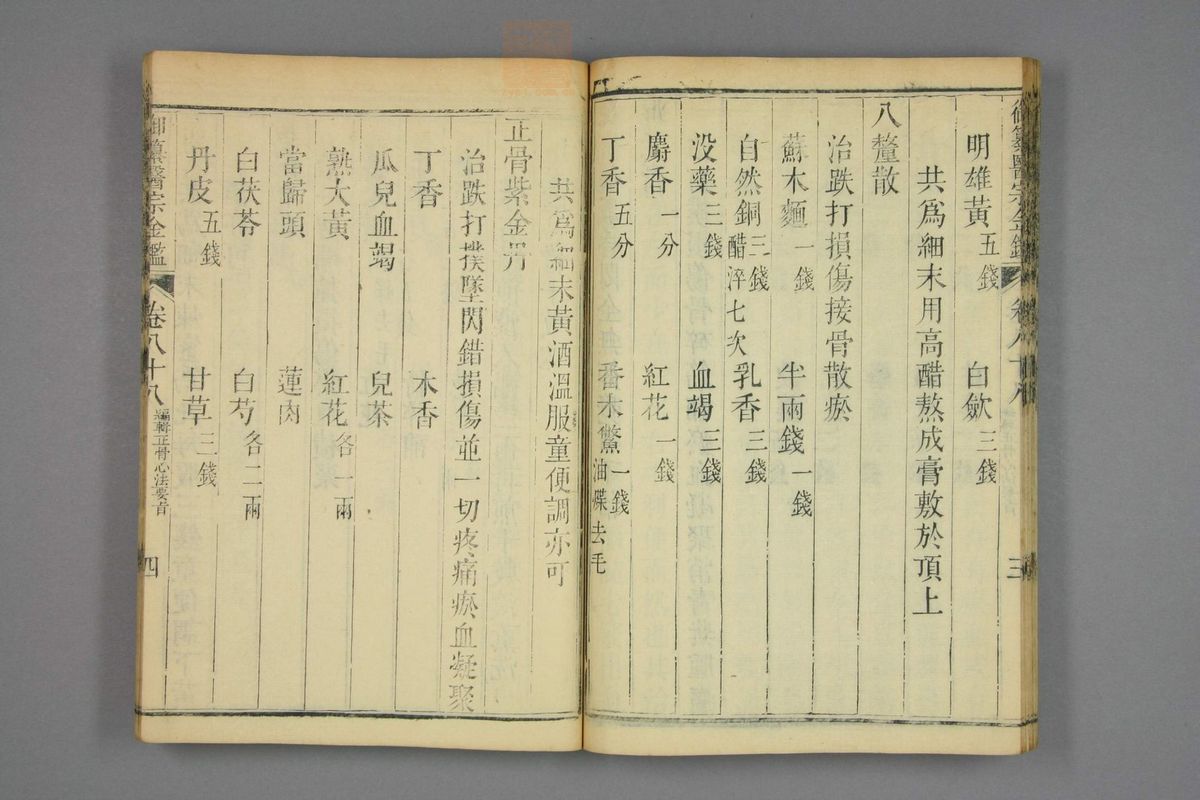 御纂醫宗金鑑 卷八十八 三
明雄黃五錢 白歛三錢
共爲細末用高醋熬成膏敷於頂上
八釐散
治跌打損傷接骨散瘀
蘇木麵一錢 半兩錢一錢
自然銅三錢醋淬七次 乳香三錢
没藥三錢 血竭三錢
麝香一分 紅花一錢
丁香五分 番木鱉一錢油煠去毛
共爲細末黃酒溫服童便調亦可
正骨紫金丹
治跌打撲墜閃錯損傷並一切疼痛瘀血凝聚
丁香 木香
瓜兒血竭 兒茶
熟大黃 紅花各一兩
當歸頭 蓮肉
白茯苓 白芍各二兩
丹皮五錢 甘草三錢
御纂醫宗金鑑 卷八十八 編輯正骨心法要旨 四